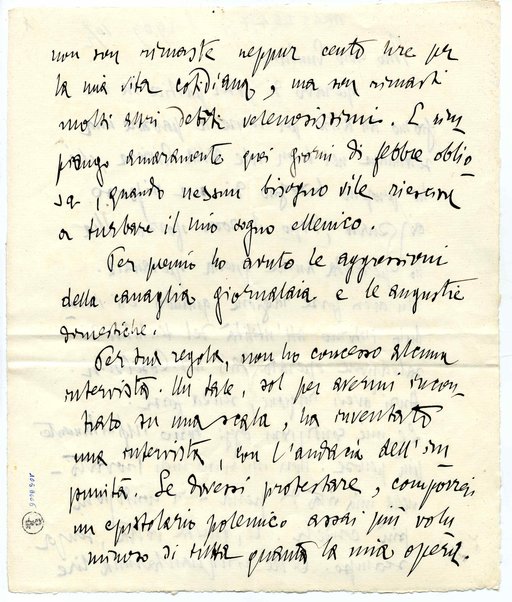 non son rimaste neppur cento lire per
la mia vita cotidiana, ma son rimasti
molti altri debiti velenosissimi. E rim
piango amaramente quei giorni di febbre oblio
sa, quando nessun bisogno vile riesciva
a turbare il mio sogno ellenico.
Per premio ho avuto le aggressioni
della canaglia giornalaia e le angustie
domestiche.
Per sua regola, non ho concesso alcuna
intervista. Un tale, sol per avermi incon
trato su una scala, ha inventato
una intervista, con l'audacia dell'im
punità. Se dovessi protestare, comporrei
un epistolario polemico assai più volu
minoso di tutta quanta la mia opera.